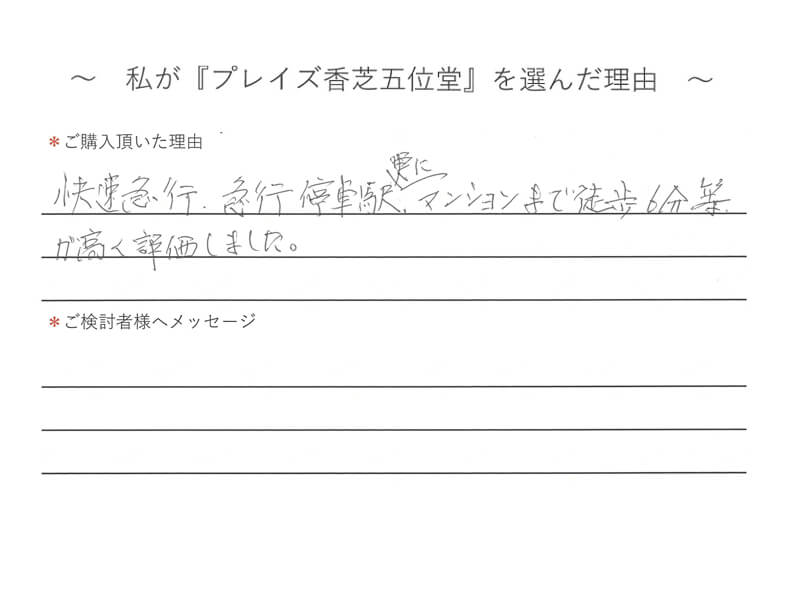 ～ 私が『プレイズ香芝五位堂』を選んだ理由 ～
*ご購入頂いた理由
快速急行、急行停車駅、更にマンションまで徒歩6分等、
が高く評価しました。
*ご検討者様へメッセージ